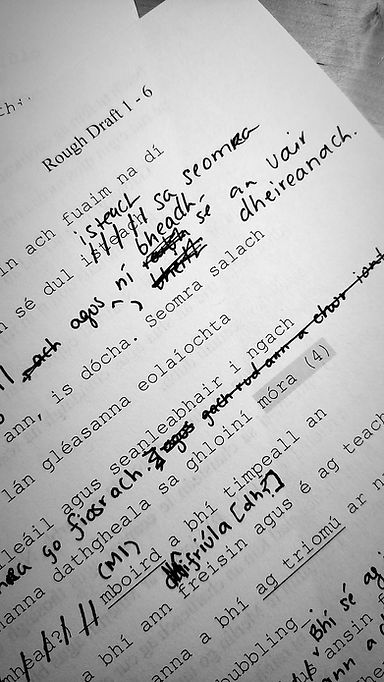 Rough Draft 1 - 6
in ach fuaim na dí
isteach sa seomra
sé dul
agus ní bheadh sé an uair dheireanach.
ann, is dócha. Seomra salach
lán gléasanna eolaíochta
leáil agus seanleabhair i ngach
go fiosrach. agus gach rud ann a chuir iont
anna dathgheala sa ghloiní móra (4)
(M1)
mboird a bhí timpeall an
dhifriúla [dhí?]
a bhí ann freisin agus é ag teach
anna a bhí ag triomú ar
bubbling
Bhí sé ag
ansin
ann a